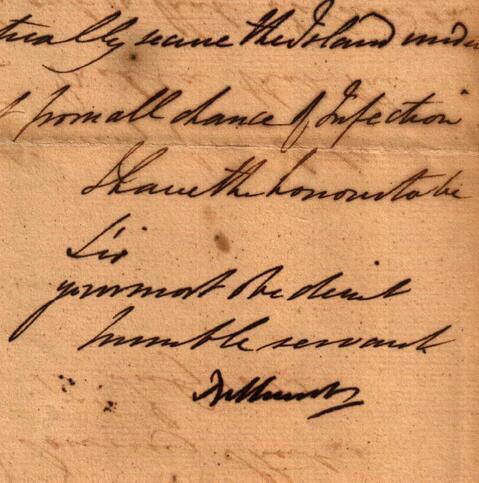 tually secure the Island unde
t from all chance of Infection
I have the honour to be
Sir
your most Obedient
humble servant